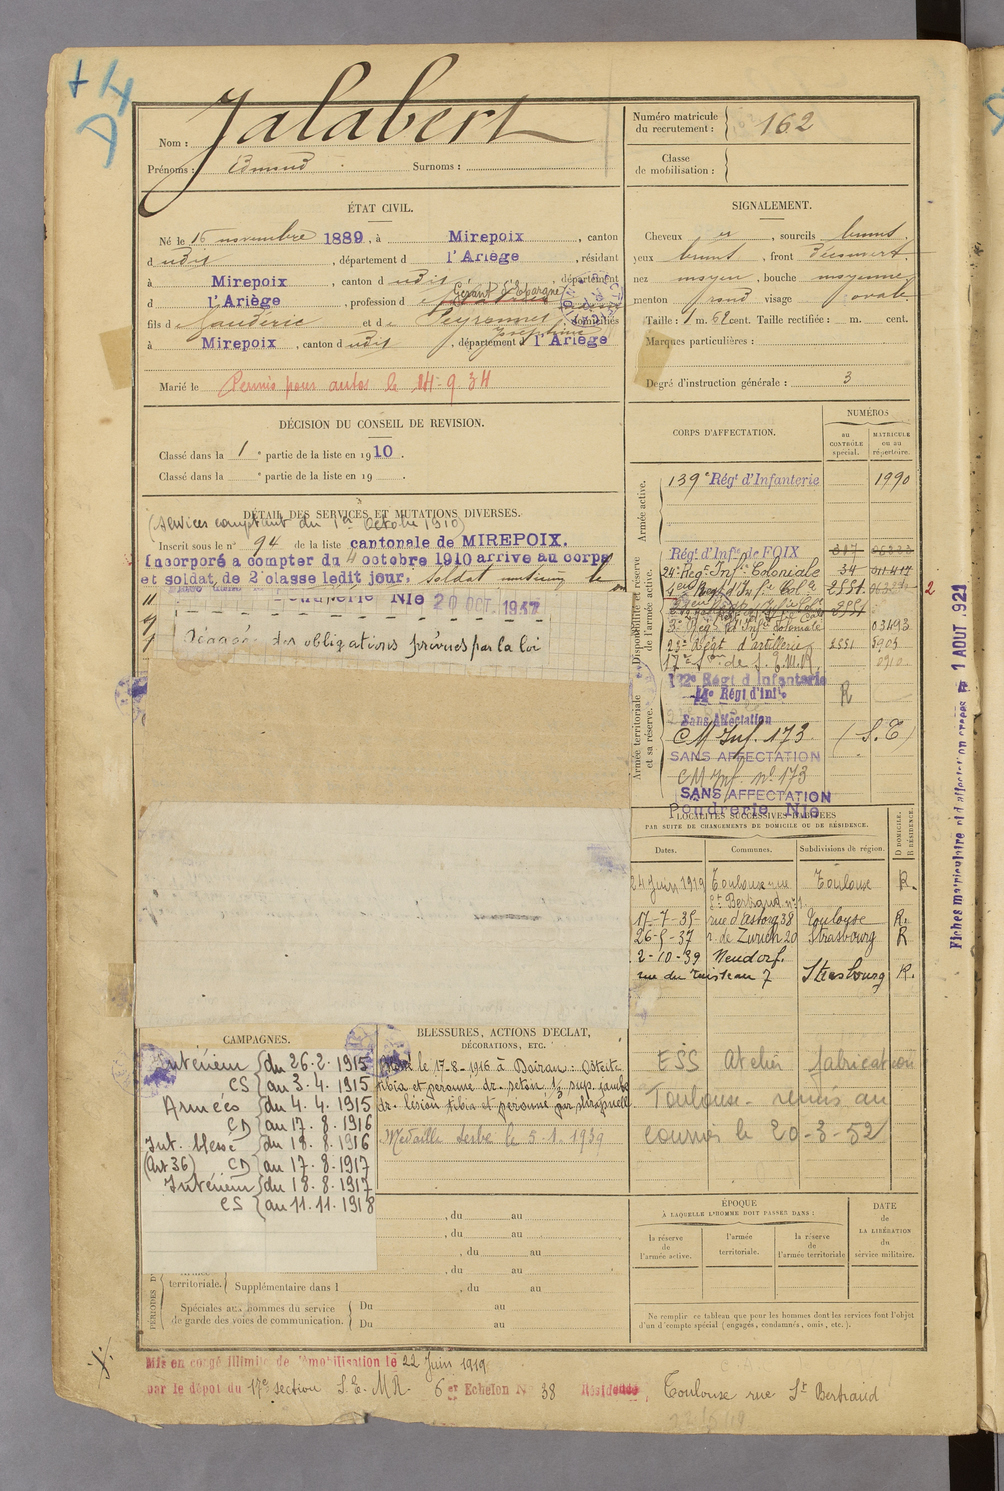 +
D4
Nom : Jalabert
Prénoms : Edmond Surnoms :
Numéro matricule du recrutement : 162
Classe de mobilisation :
ÉTAT CIVIL.
Né le 16 novembre 1889, à Mirepoix, canton
dudit, département d l'Ariège, résidant
à Mirepoix, canton dudit, département
d l'Ariège, profession de
Gérant d'Epargne
fils de Gaudéric et de Peyronnet domiciliés
Joséphine
à Mirepoix, canton dudit, département d l'Ariège
Marié le
Permis pour autos le 14-9-34
SIGNALEMENT.
Cheveux et, sourcils bruns
yeux bruns, front découvert
nez moyen, bouche moyenne
menton rond visage ovale
Taille : 1 m. 62 cent. Taille rectifiée : m. cent.
Marques particulières :
Degré d'instruction générale : 3
DÉCISION DU CONSEIL DE REVISION.
Classé dans la 1e partie de la liste en 1910.
Classé dans la e partie de la liste en 19 .
DÉTAIL DES SERVICES ET MUTATIONS DIVERSES.
(services comptant du 1er Octobre 1910)
Inscrit sous le n° 94 de la liste cantonale de MIREPOIX.
Incorporé à compter du 4 octobre 1910 arrivé au corps
et soldat de 2e classe ledit jour, soldat
Poudrerie Nle 20 OCT. 1937
Dégagé des obligations prévues par la loi
CORPS D'AFFECTATION.
NUMÉROS
au CONTRÔLE spécial.
MATRICULE ou au répertoire.
Armée active.
139e Régt d'Infanterie 1990
Disponibilité et réserve de l'armée active.
Régt d'Infie de FOIX
24e Régt Infie Coloniale 34
2551
3e Régt d'Infie Coloniale 03493
23e Régt d'artillerie 2551
17e Son de S.E.M.R.
Armée territoriale et sa réserve.
122e Régt d'Infanterie
14e Régt d'infie R
Sans Affectation
CM Inf. 173 (S.T)
SANS AFFECTATION
CM Inf. n° 173
SANS AFFECTATION
Poudrerie Nle
2
Fiches matriculaire et d'affectation créées le 1 AOUT 1921
LOCALITÉS SUCCESSIVES HABITÉES
PAR SUITE DE CHANGEMENTS DE DOMICILE OU DE RÉSIDENCE.
Dates. Communes. Subdivisions de région. D DOMICILE. R RÉSIDENCE.
24 Juin 1919 Toulouse rue Toulouse R.
St Bertrand n° 1.
17-7-35- rue d'Astorg 38 Toulouse R.
26-5-37 r. de Zurich 20 Strasbourg R
2-10-39 Neudorf.
rue du ruisseau 7 Strasbourg R.
ESS Atelier fabrication
Toulouse - remis au
courrois le 20-3-52
CAMPAGNES.
Intérieur du 26.2.1915
CS au 3.4.1915
Armées du 4.4.1915
CD au 17.8.1916
Int. blessé du 18.8.1916
(Art 36) CD au 17.8.1917
Intérieur du 18.8.1917
CS au 11.11.1918
BLESSURES, ACTIONS D'ECLAT,
DÉCORATIONS, ETC.
Blessé le 17-8-1916 à Doiran : Ostéite
tibia et péroné dr. séton 1/3 sup. jambe
dr. lésion tibia et péroné par shrapnell
Médaille Serbe le 5.1.1939
, du au
, du au
, du au
, du au
territoriale. Supplémentaire dans l , du au
Spéciales aux hommes du service
de garde des voies de communication.
Du au
Du au
ÉPOQUE
À LAQUELLE L'HOMME DOIT PASSER DANS :
la réserve de l'armée active.
l'armée territoriale.
la réserve de l'armée territoriale
DATE de LA LIBÉRATION du service militaire.
Ne remplir ce tableau que pour les hommes dont les services font l'objet
d'un décompte spécial (engagés, condamnés, omis, etc.).
Mis en congé illimité de démobilisation le 22 Juin 1919
par le dépôt du 17e section S.E.M.R. 6er Echelon N° 38 Résidence, Toulouse rue St Bertrand